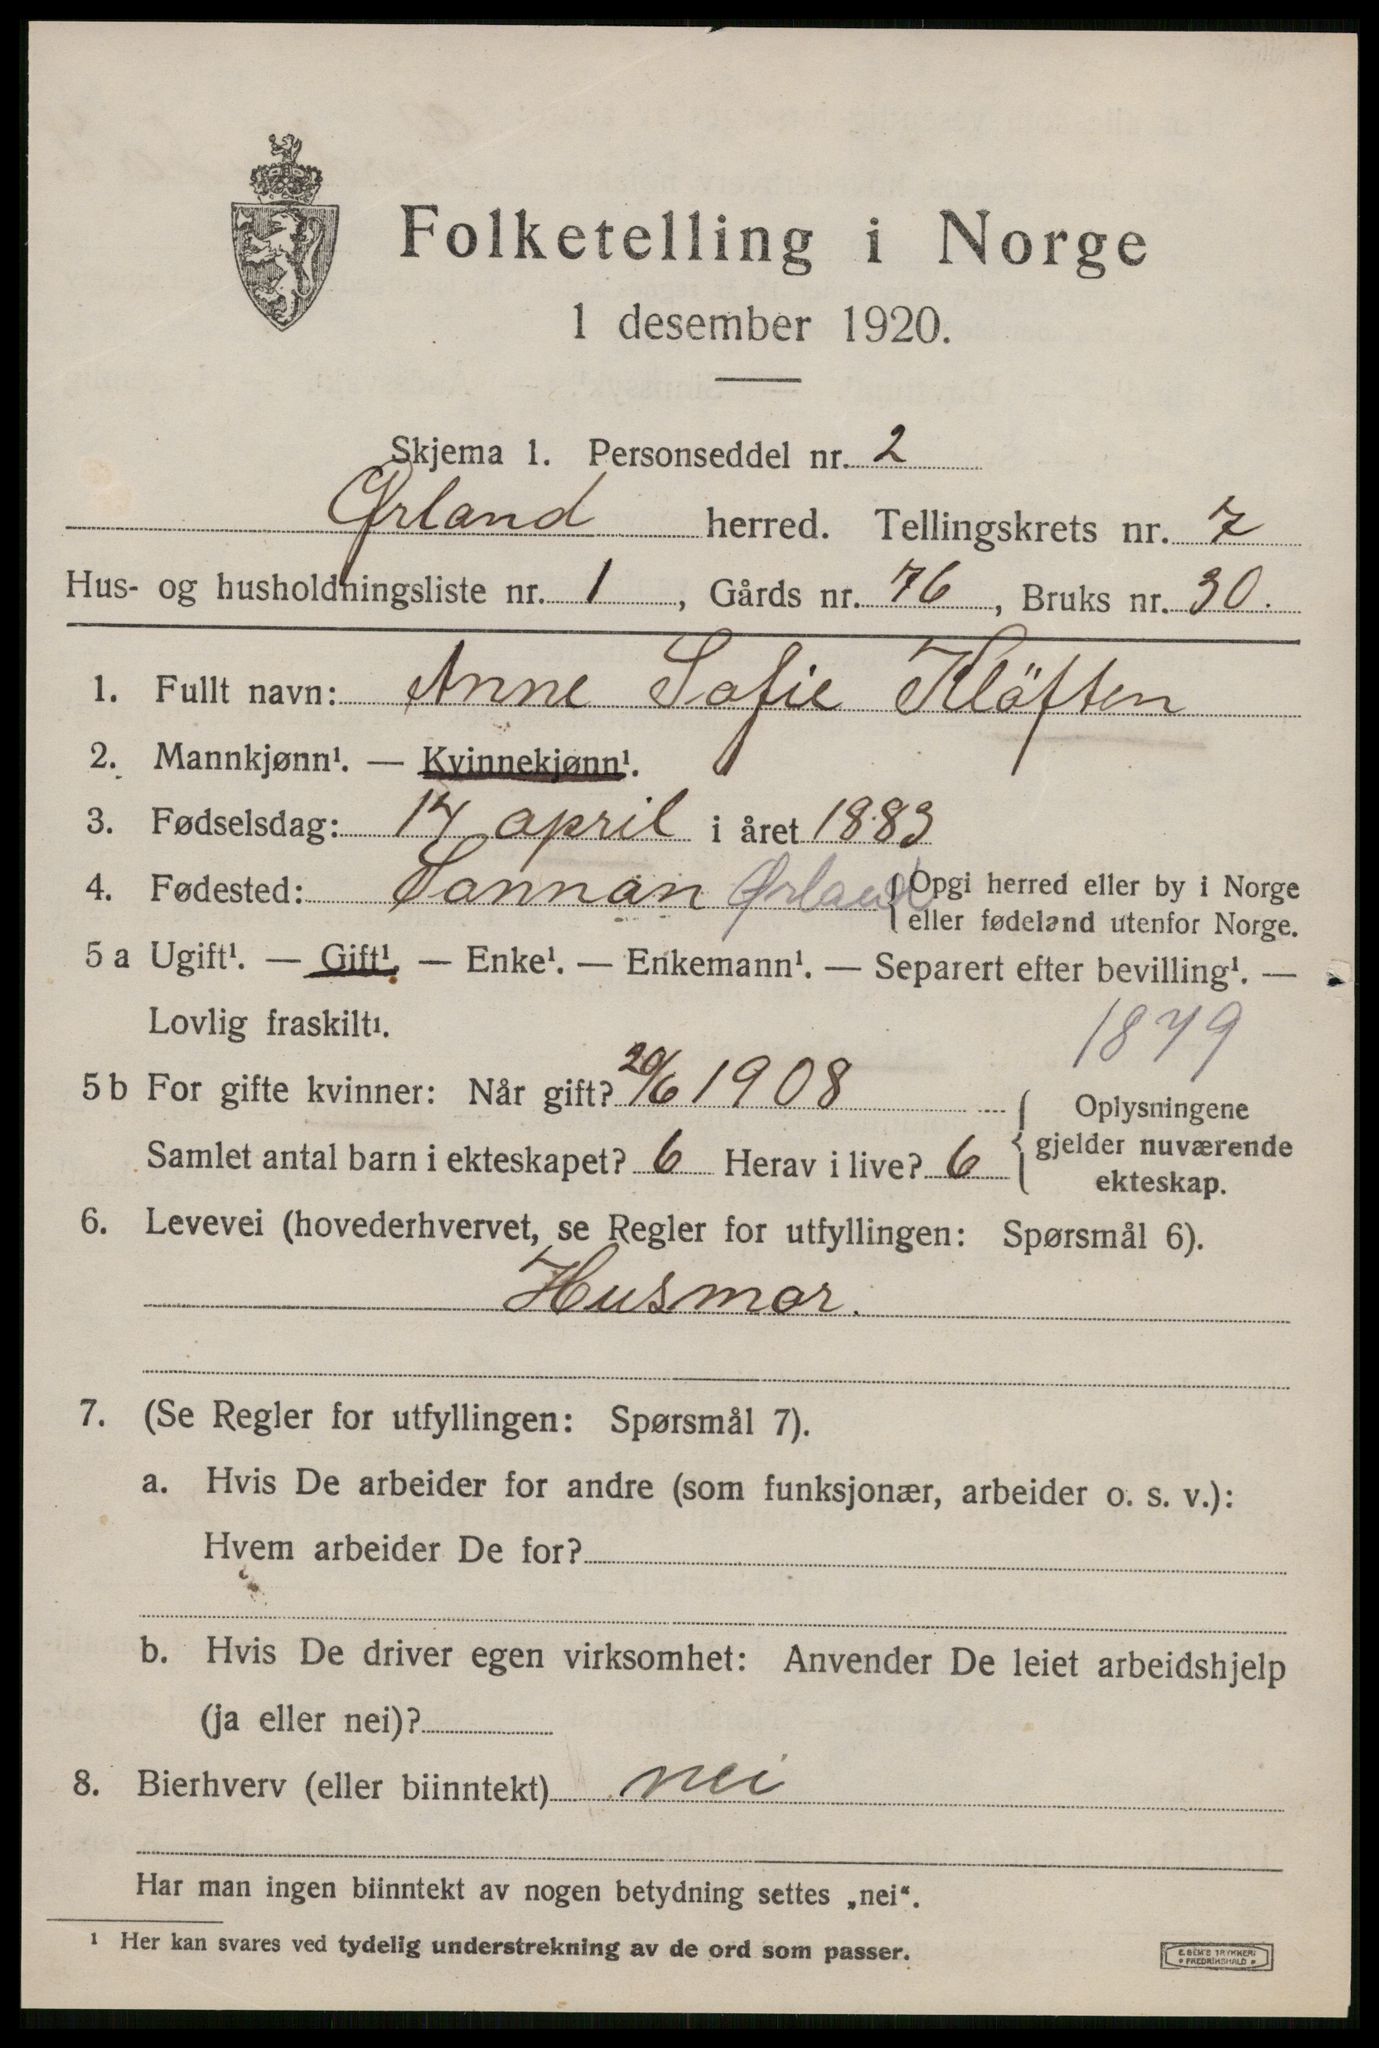 Folketelling i Norge
1 desember 1920.
Skjema 1. Personseddel nr. 2
Ørland herred. Tellingskrets nr. 7
Hus- og husholdningsliste nr. 1, Gårds nr. 76, Bruks nr. 30.
1. Fullt navn: Anne Sofie Kläften
2. Mannkjønn¹. — Kvinnekjønn¹.
3. Fødselsdag: 14 april i året 1883
4. Fødested: Sannan Ørland { Opgi herred eller by i Norge
eller fødeland utenfor Norge.
5 a Ugift¹. — Gift¹. — Enke¹. — Enkemann¹. — Separert efter bevilling¹. —
Lovlig fraskilt¹.
1879
5 b For gifte kvinner: Når gift? 20/6 1908
Oplysningene
gjelder nuværende
ekteskap.
Samlet antal barn i ekteskapet? 6 Herav i live? 6
6. Levevei (hovederhvervet, se Regler for utfyllingen: Spørsmål 6).
Husmor.
7. (Se Regler for utfyllingen: Spørsmål 7).
a. Hvis De arbeider for andre (som funksjonær, arbeider o. s. v.):
Hvem arbeider De for?
b. Hvis De driver egen virksomhet: Anvender De leiet arbeidshjelp
(ja eller nei)?
8. Bierhverv (eller biinntekt) nei
Har man ingen biinntekt av nogen betydning settes „nei“.
¹ Her kan svares ved tydelig understrekning av de ord som passer.
E. SEM'S TRYKKERI
• FREDRIKSHALD •